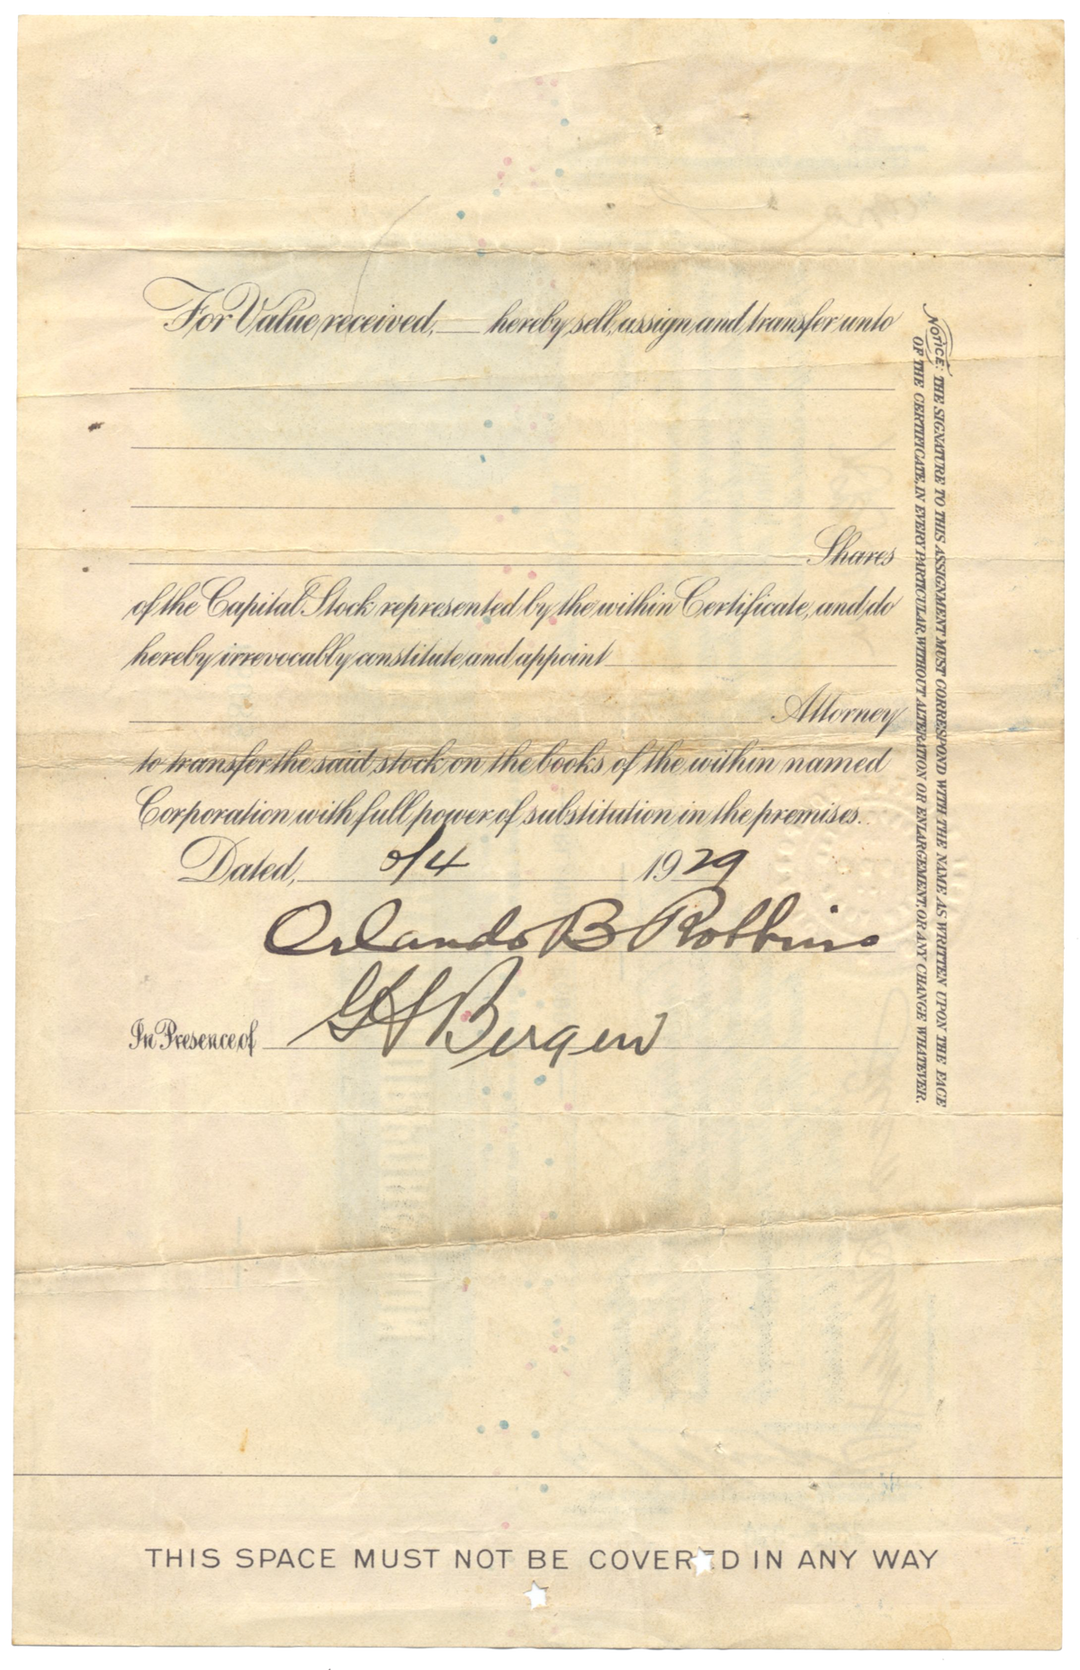 For Value received, hereby sell, assign and transfer unto
Shares
of the Capital Stock represented by the within Certificate, and do
hereby irrevocably constitute and appoint
Attorney
to transfer the said stock on the books of the within named
Corporation with full power of substitution in the premises.
Dated, 3/4 1929
Orlando B Robbins
In Presence of G H Bergen
NOTICE: THE SIGNATURE TO THIS ASSIGNMENT MUST CORRESPOND WITH THE NAME AS WRITTEN UPON THE FACE
OF THE CERTIFICATE, IN EVERY PARTICULAR, WITHOUT ALTERATION OR ENLARGEMENT, OR ANY CHANGE WHATEVER.
THIS SPACE MUST NOT BE COVERED IN ANY WAY